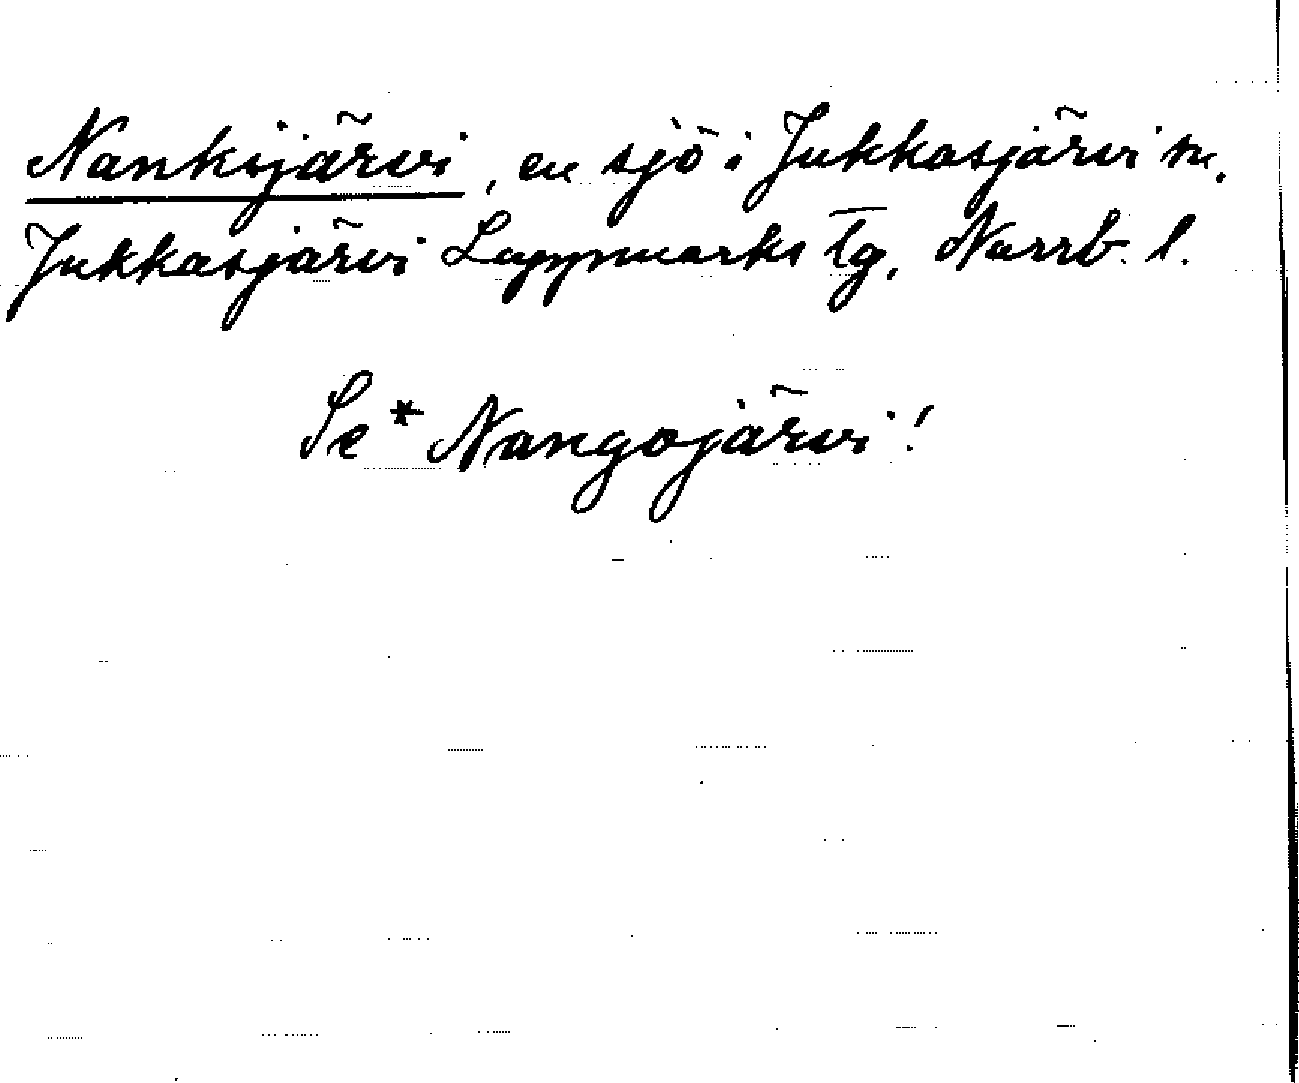 Nankijärvi, en sjö i Jukkasjärvi sn,
Jukkasjärvi Lappmarks tg, Norrb. l.
Se * Nangojärvi!